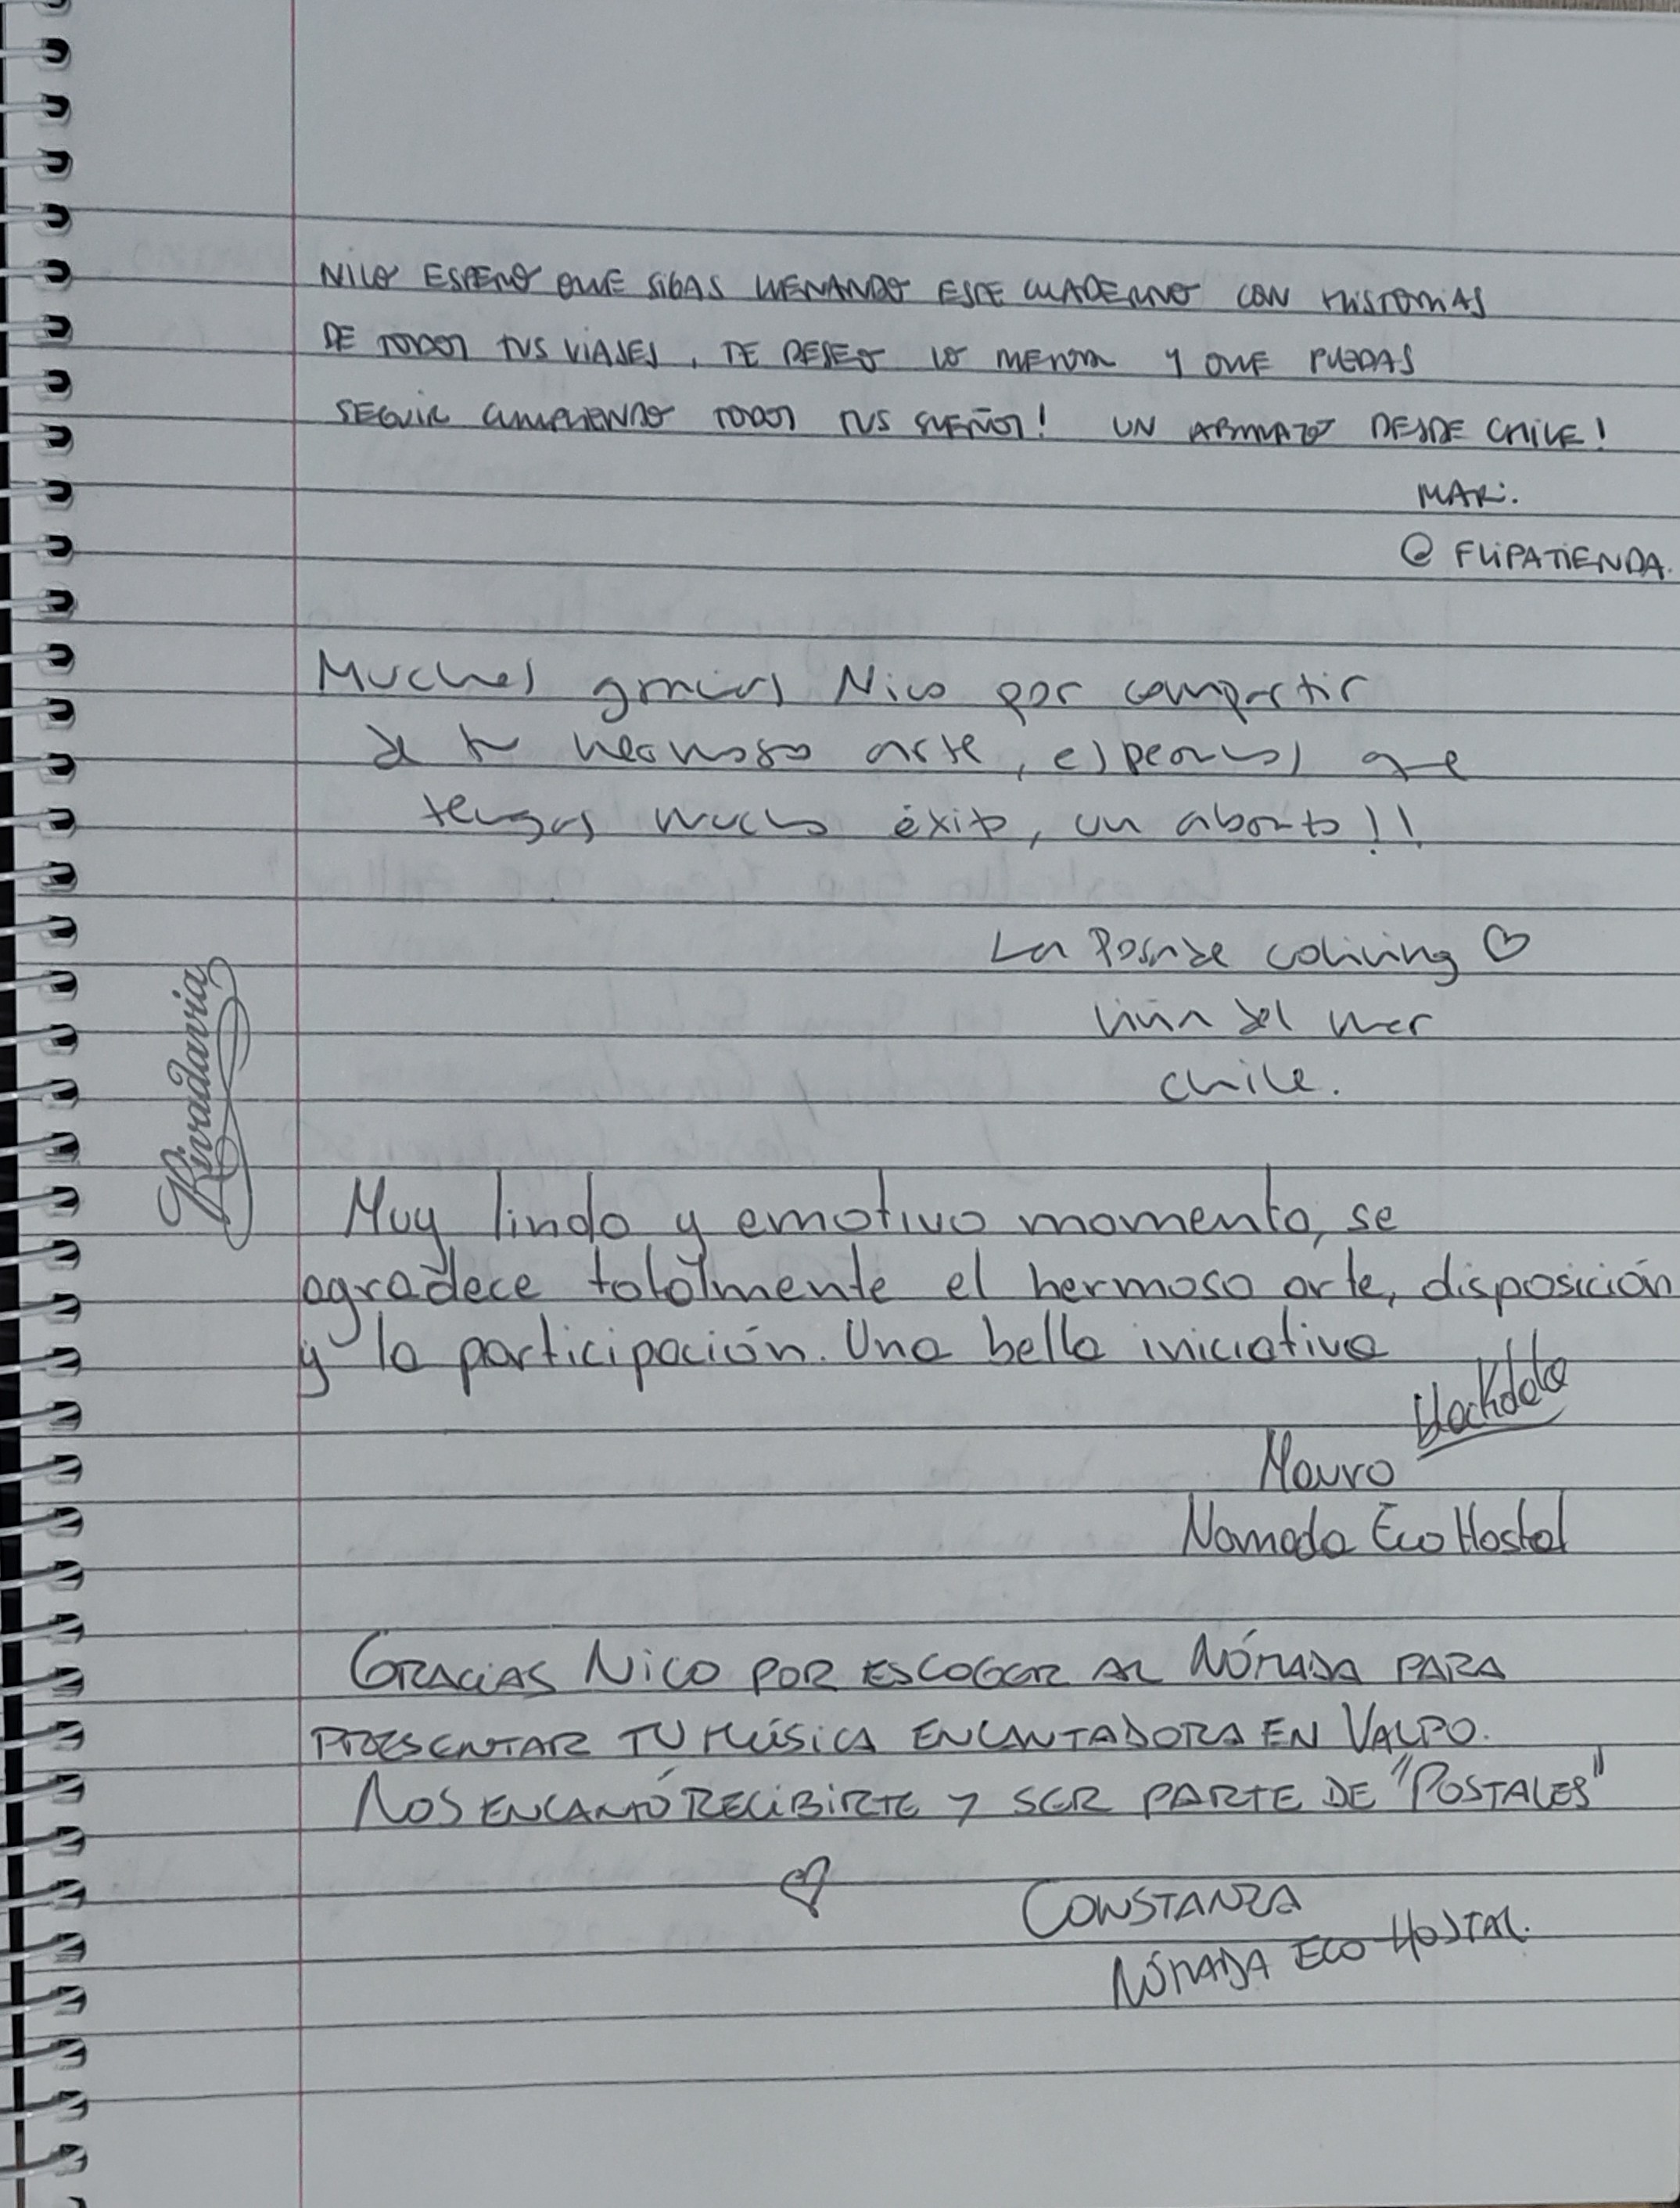 NICO ESPERO QUE SIGAS LLENANDO ESTE CUADERNO CON HISTORIAS
DE TODOS TUS VIAJES, TE DESEO LO MEJOR Y QUE PUEDAS
SEGUIR CUMPLIENDO TODOS TUS SUEÑOS! UN ABRAZO DESDE CHILE!
MARI.
@ FLIPATIENDA.
Muchas gracias Nico por compartir
de tu hermoso arte, esperamos que
tengas mucho éxito, un abrazo!!
La Posada coliving ♡
Viña del mar
Chile.
Rivadavia
Muy lindo y emotivo momento, se
agradece totalmente el hermoso arte, disposición
y la participación. Una bella iniciativa
Mauro
Nomada Eco Hostal
GRACIAS NICO POR ESCOGER AL NÓMADA PARA
PRESENTAR TU MÚSICA ENCANTADORA EN VALPO.
NOS ENCANTÓ RECIBIRTE Y SER PARTE DE "POSTALES"
♡ CONSTANZA
NÓMADA ECO HOSTAL.